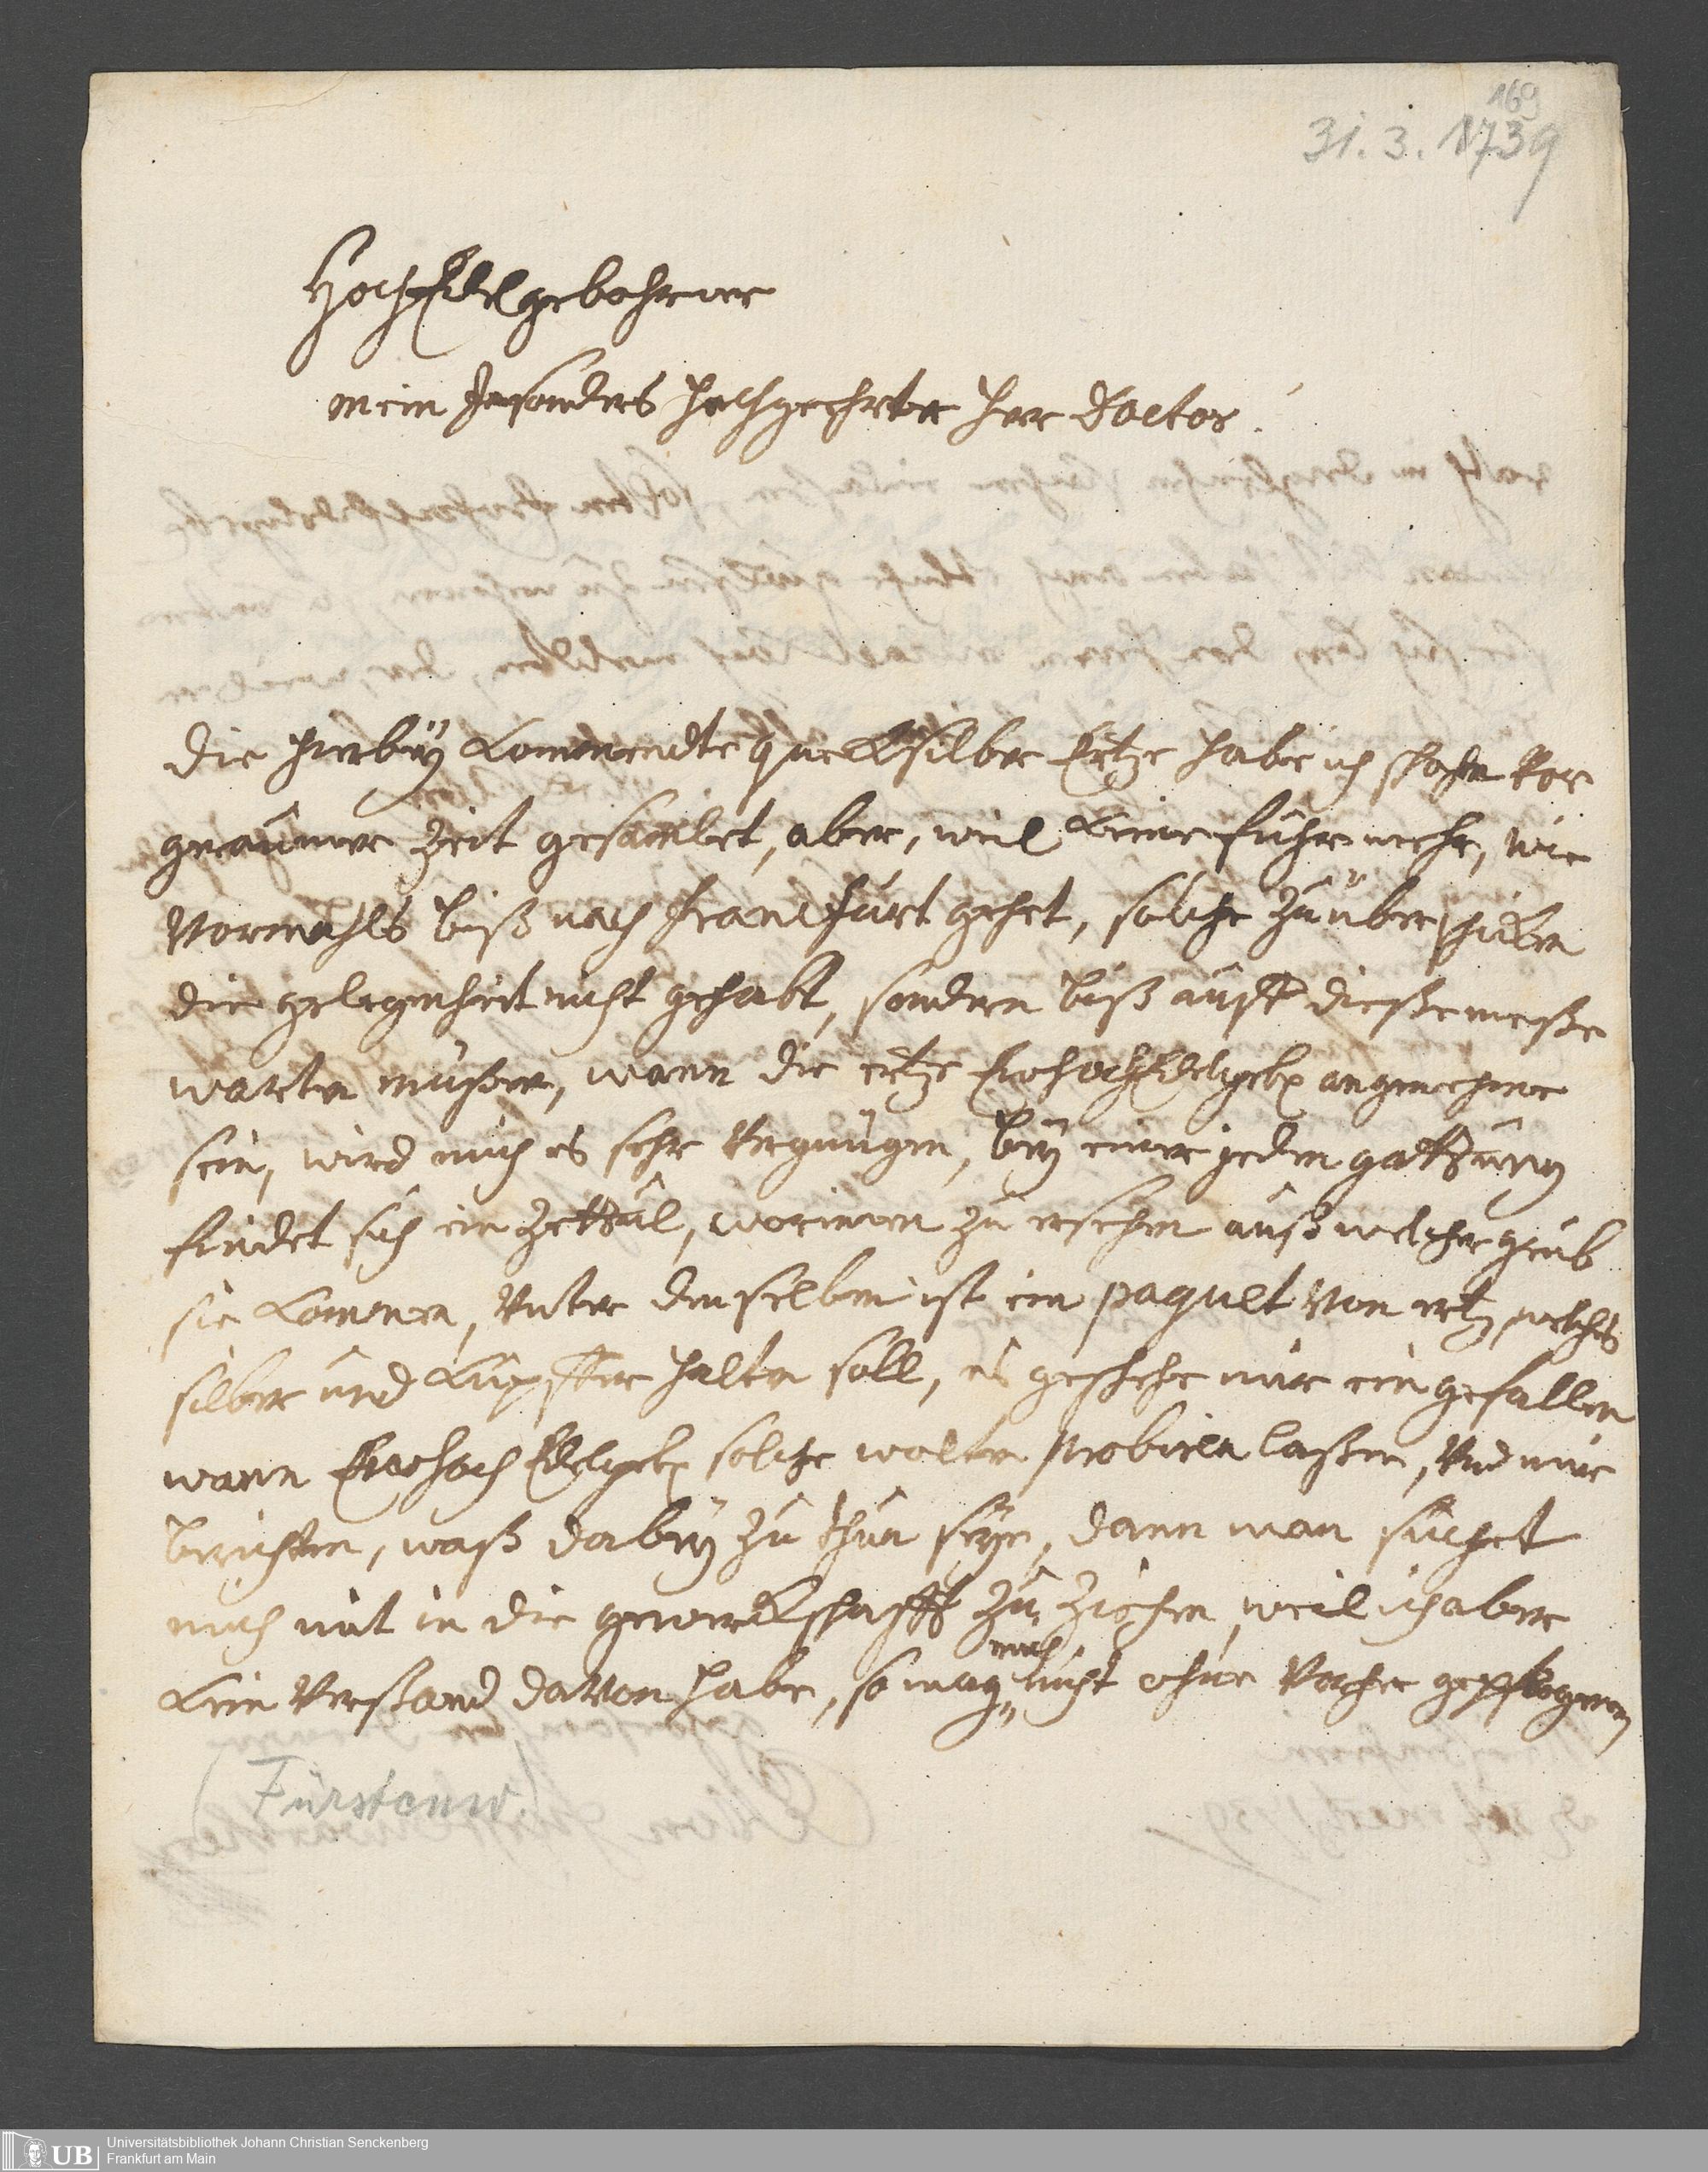 169
31. 3. 1739
HochEdelgebohrner
mein Insonders hochgeehrter Herr Doctor!
die hierbey kommendte queckhsilber Ertze habe ich schohn vor
geraumer Zeit gesamblet, aber, weil keine fuhr mehr, wie
vormahls biß nach franckfurt gehet, solche zu überschicken
die gelegenheit nicht gehabt, sondern biß auff dieße meße
warten müßen, wann die ertze Ewhochedelgeb angenehm
sein, wird mich es sehr vergnügen, bey einer jeden gattung
findet sich ein Zettul, worinnen zu ersehen auß welcher grub
sie kommen, unter denselben ist ein paquet von ertz, welches
silber und kupffer halten soll, es geschehe mir ein gefallen
wann Ewhoch Edelgeb solche wolten probiren laßen, und mir
berichten, waß dabey zu thun seye, dann man suchet
mich mit in die gewerckschafft zu ziehen, weil ich aber
kein Verstand davon habe, so mag mich nicht ohne vorher gepflogenen
(Fürstenw.)
UB
Universitätsbibliothek Johann Christian Senckenberg
Frankfurt am Main